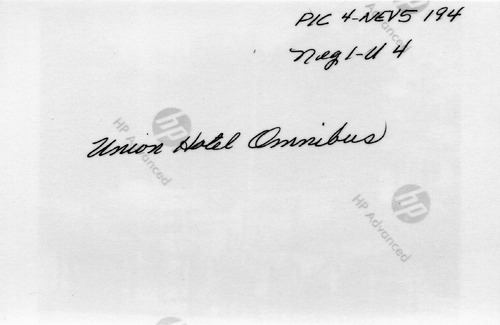 PIC 4-NEV5 194
Neg 1-U 4
Union Hotel Omnibus
hp
HP Advanced
hp
HP Advanced